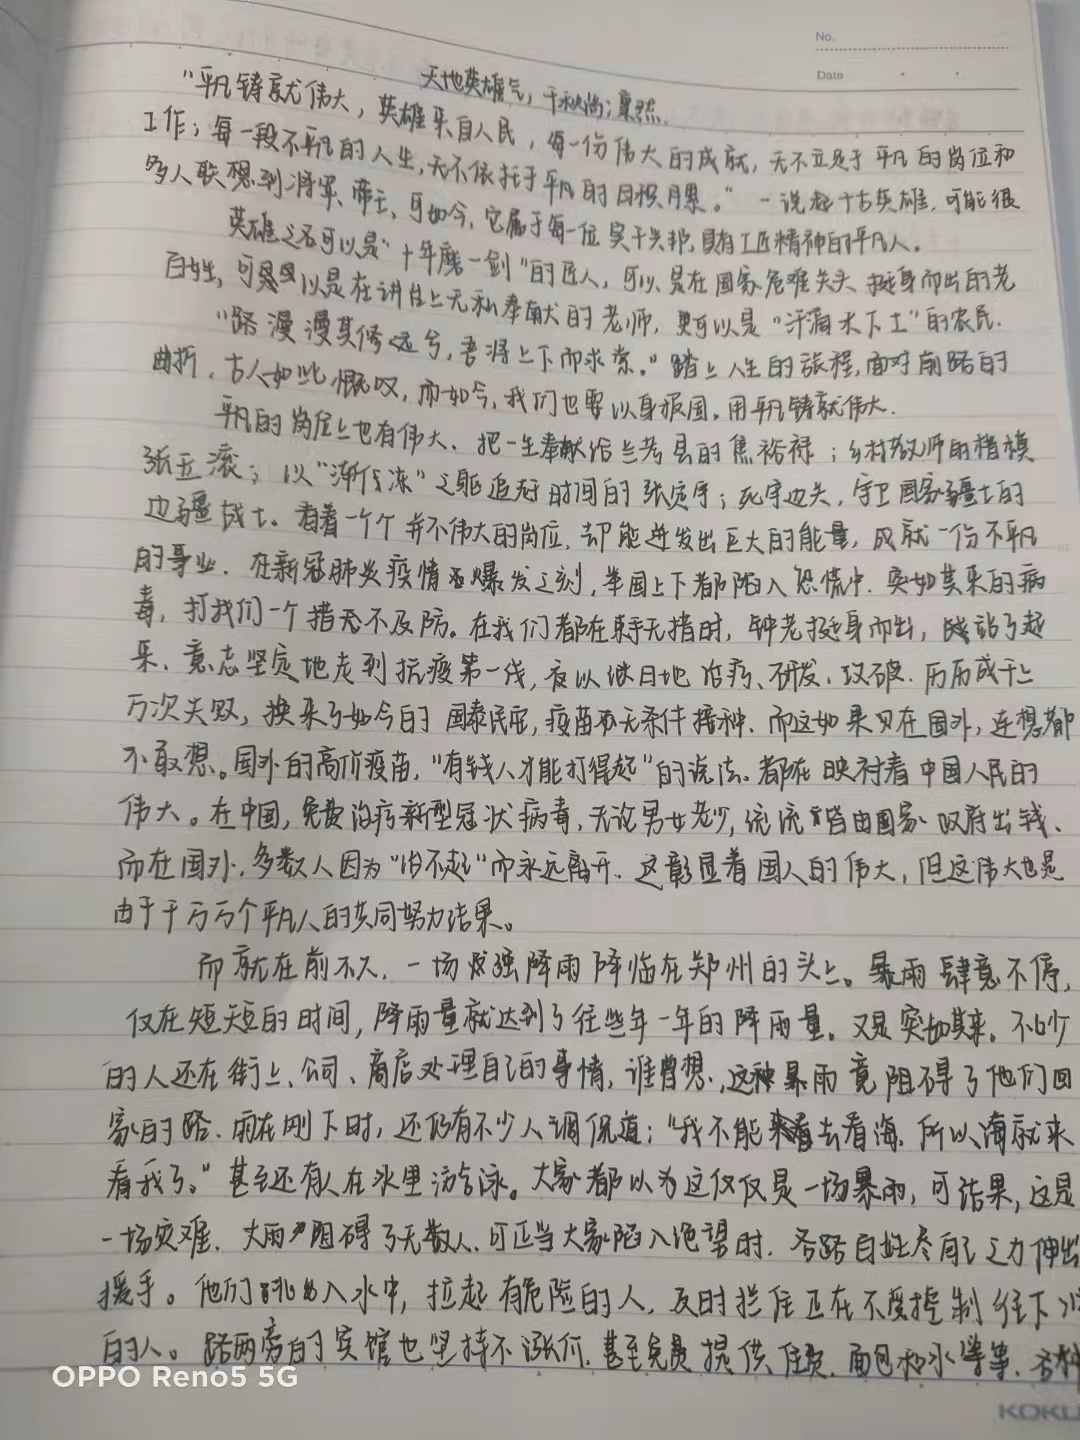 No.
Date
天地英雄气，千秋尚凛然.
“平凡铸就伟大，英雄来自人民，每一份伟大的成就，无不立足于平凡的岗位和
工作；每一段不平凡的人生，无不依托于平凡的日积月累。”一说起古英雄，可能很
多人联想到将军、帝王，可如今，它属于每一位实干兴邦，具有工匠精神的平凡人。
英雄之名可以是“十年磨一剑”的匠人，可以是在国家危难关头挺身而出的老
百姓，可以是在讲台上无私奉献的老师，更可以是“汗滴禾下土”的农民.
“路漫漫其修远兮，吾将上下而求索。”踏上人生的旅程，面对前路的
曲折，古人如此慨叹，而如今，我们也要以身报国，用平凡铸就伟大.
平凡的岗位上也有伟大、把一生奉献给兰考县的焦裕禄；乡村教师的楷模
张玉滚；以“渐冻”之躯追赶时间的张定宇；死守边关，守卫国家疆土的
边疆战士。看着一个个并不伟大的岗位，却能迸发出巨大的能量，成就一份不平凡
的事业.在新冠肺炎疫情爆发之刻，举国上下都陷入恐慌中.突如其来的病
毒，打我们一个措无不及防。在我们都在束手无措时，钟老挺身而出，站了起
来、意志坚定地走到抗疫第一线，夜以继日地治疗、研发、攻破.历历成千上
万次失败，换来了如今日的国泰民安，疫苗无条件接种.而这如果只在国外，连想都
不敢想。国外的高价疫苗，“有钱人才能打得起”的说法.都在映衬着中国人民的
伟大。在中国，免费治疗新型冠状病毒，无论男女老少，统统皆由国家政府出钱、
而在国外，多数人因为“治不起”而永远离开.这彰显着国人的伟大，但这伟大也是
由于千万万个平凡人的共同努力结果。
而就在前不久，一场强降雨降临在郑州的头上。暴雨肆意不停，
仅在短短的时间，降雨量就达到了往些年一年的降雨量。又是突如其来。不少
的人还在街上、公司、商店处理自己的事情，谁曾想，这种暴雨竟阻碍了他们回
家的路.雨在刚下时，还仍有不少人调侃道：“我不能去看海，所以海就来
看我了。”甚至还有人在水里游泳。大家都以为这仅仅是一场暴雨，可结果，这是
一场灾难.大雨阻碍了无数人.可正当大家陷入绝望时.各路百姓尽自己之力伸出
援手。他们跳入水中，拉起有危险的人，及时拦住正在不受控制往下
的人。路两旁的宾馆也坚持不涨价，甚至免费提供住宿，面包和水等等.
OPPO Reno5 5G
KOKU